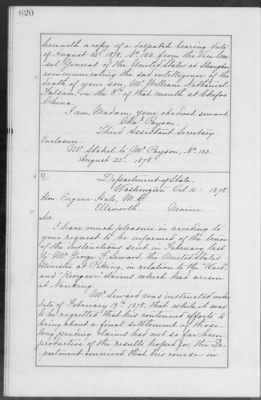 620
herewith a copy of a despatch bearing date
of August 22d 1878. No. 102. from the Vice Con-
sul General of the United States at Shanghai
communicating the sad intelligence of the
death of your son, Mr. William Nathaniel
Falsam on the 8th of that month at Chefoo
China.
I am Madam, your obedient servant,
Chs. Payson.
Third Assistant Secretary
Enclosure.
Mr. Stahel to Mr. Payson, No. 102.
August 22d 1878.
Department of State,
Washington Oct. 10 - 1878.
Hon. Eugene Hale, M.C.
Ellsworth Maine.
Sir:
I have much pleasure in acceding to
your request to be informed of the tenor
of the instructions sent in February last
to Mr. George F. Seward, the United States
Minister at Peking, in relation to the "Ward"
and claims which had arisen
at Nanking.
Mr. Seward was instructed under
date of February 19th 1878, that while it was
to be regretted that his continued efforts to
bring about a final settlement of those
long pending claims had not so far been
productive of the results hoped for the De-
partment conceived that his course in